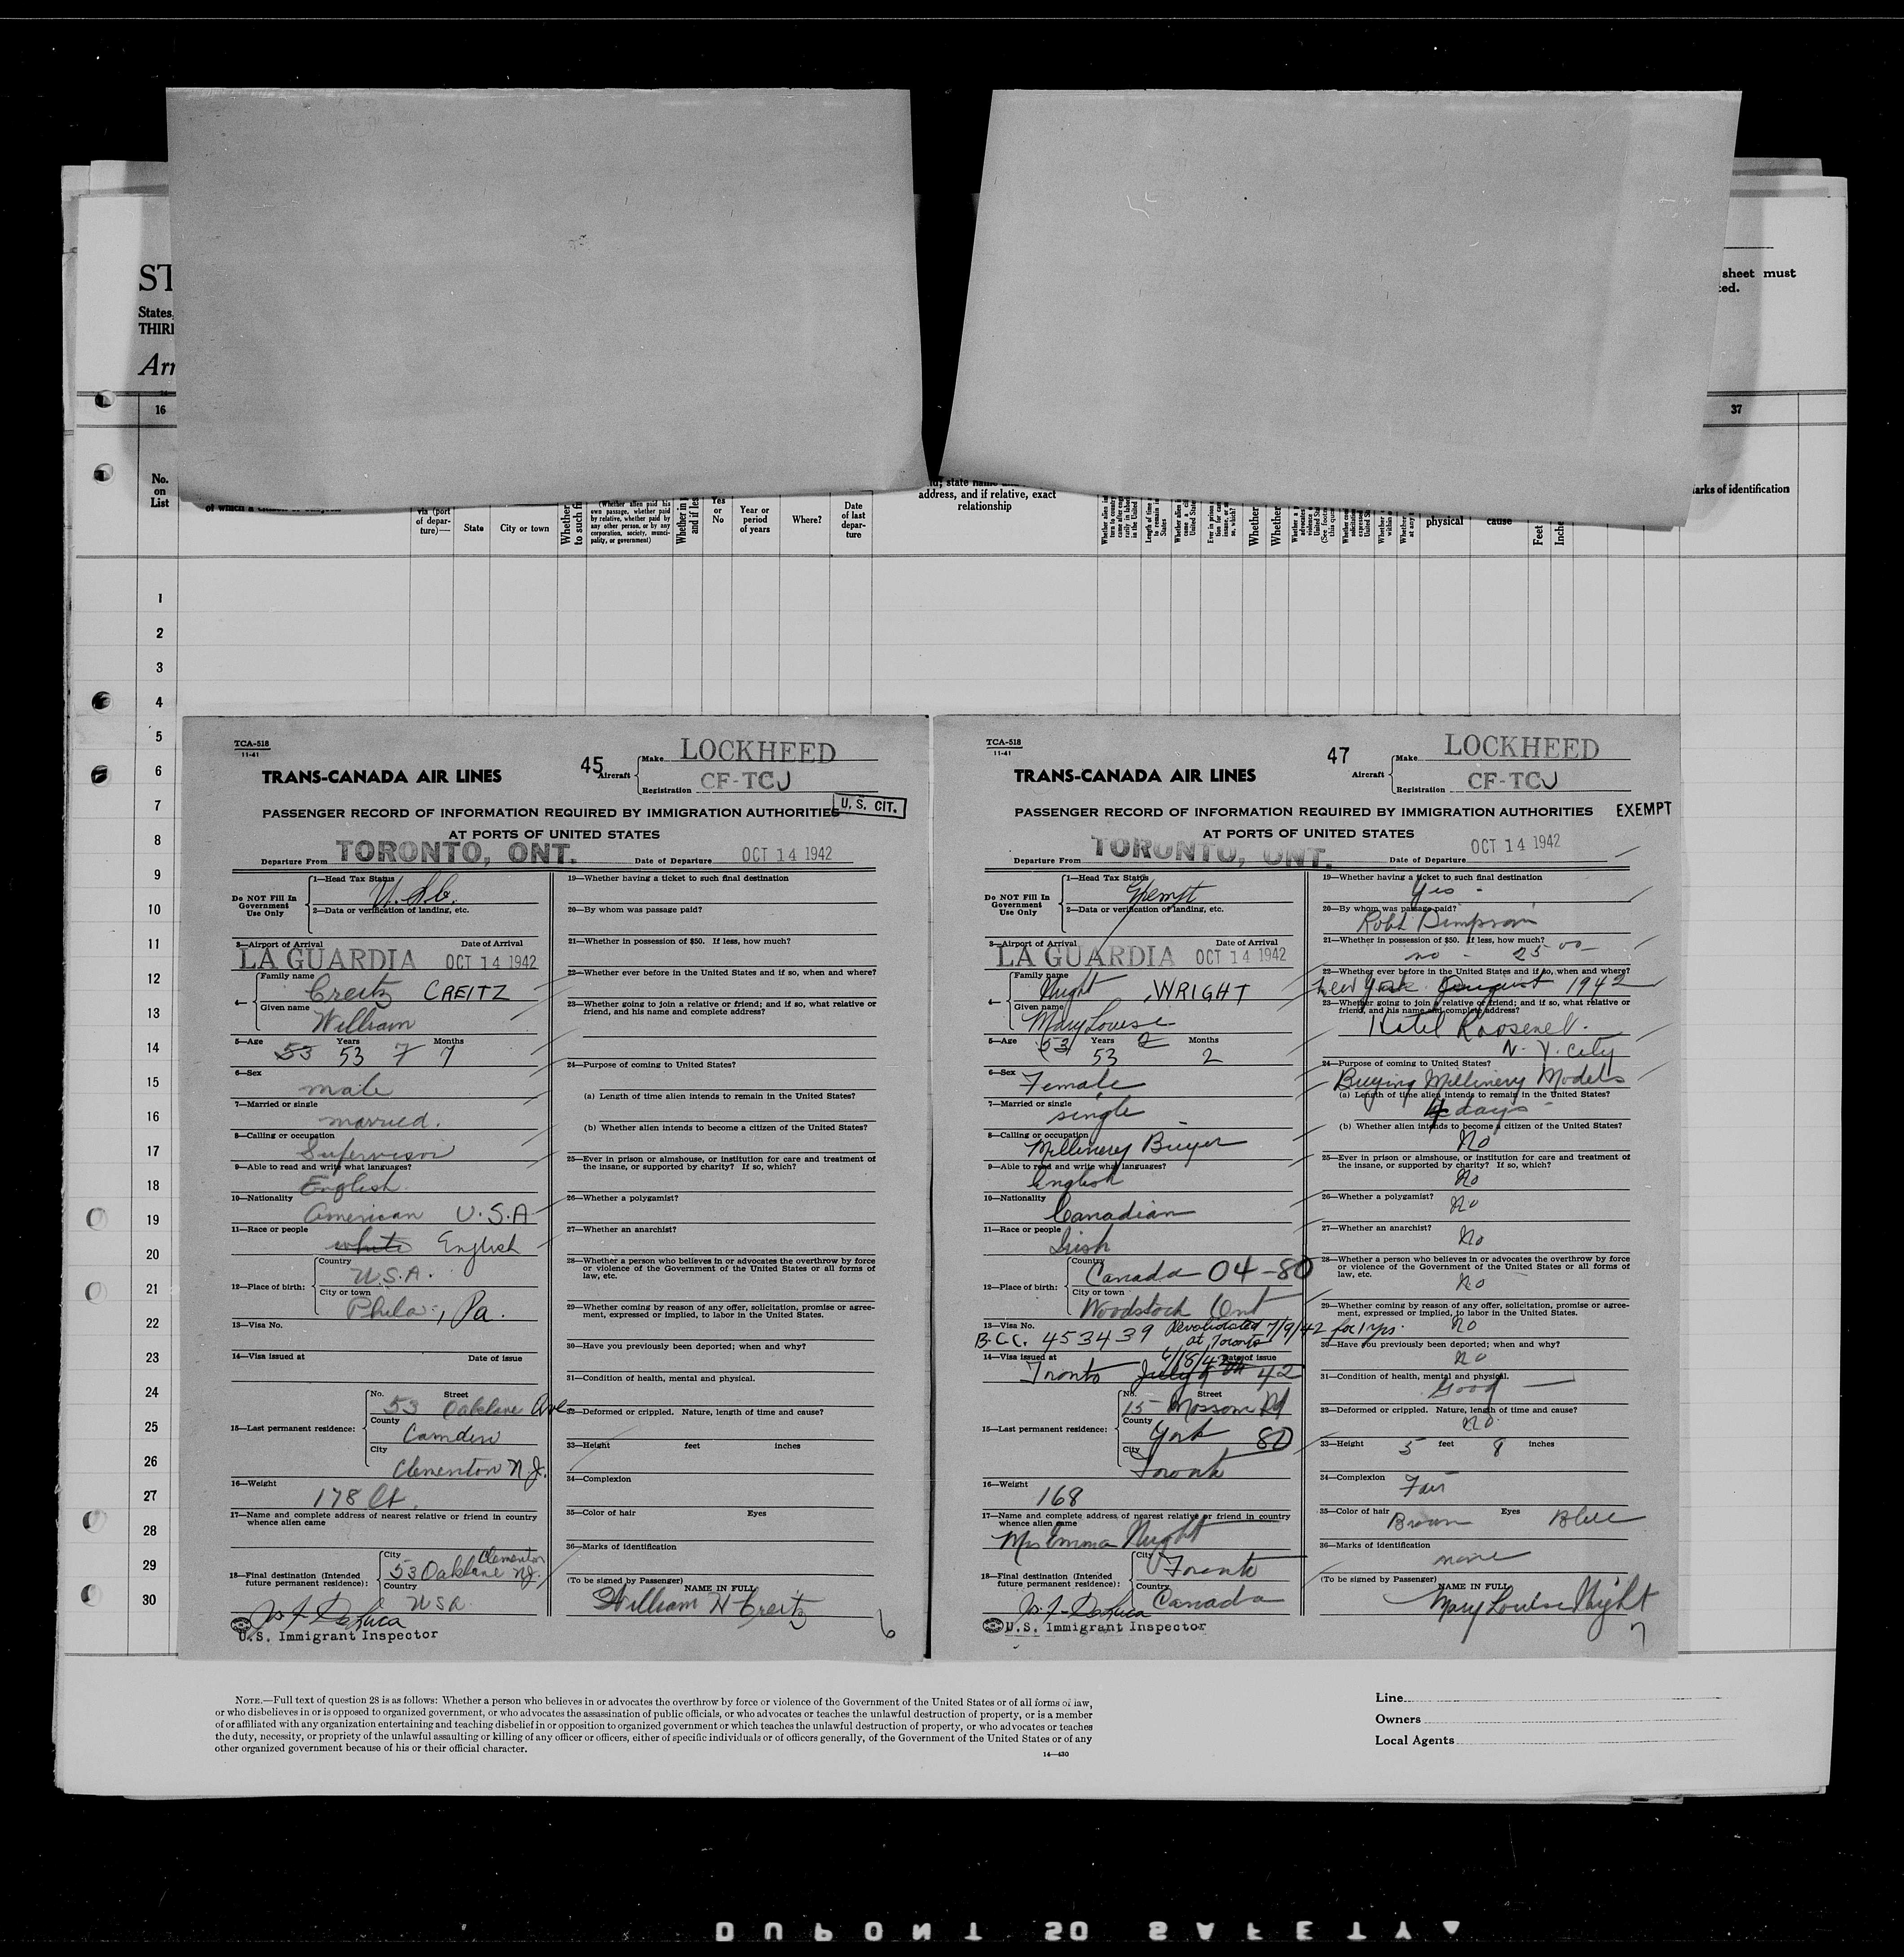 ST
States,
THIRD
Arr
sheet must
ted.
16
37
No.
on
List
via (port
of depar-
ture)—
State
City or town
Whether
to such
(Whether alien paid his
own passage, whether paid
by relative, whether paid by
any other person, or by any
corporation, society, munici-
pality, or government)
Whether in
and if les
Yes
or
No
Year or
period
of years
Where?
Date
of last
depar-
ture
address, and if relative, exact
relationship
physical
cause
Feet
Inche
arks of identification
1
2
3
4
5
6
7
8
9
10
11
12
13
14
15
16
17
18
19
20
21
22
23
24
25
26
27
28
29
30
TCA-518
11-41
TRANS-CANADA AIR LINES
45
Aircraft
Make LOCKHEED
Registration CF-TCJ
PASSENGER RECORD OF INFORMATION REQUIRED BY IMMIGRATION AUTHORITIES
U. S. CIT.
AT PORTS OF UNITED STATES
Departure From TORONTO, ONT. Date of Departure OCT 14 1942
Do NOT Fill In
Government
Use Only
1—Head Tax Status
2—Data or verification of landing, etc.
3—Airport of Arrival Date of Arrival
LA GUARDIA OCT 14 1942
4—
Family name
Creitz CREITZ
Given name
William
5—Age Years Months
53 53 7 7
6—Sex
male
7—Married or single
married.
8—Calling or occupation
Supervisor
9—Able to read and write what languages?
English
10—Nationality
American U.S.A
11—Race or people
white English
12—Place of birth:
Country
U.S.A.
City or town
Phila., Pa.
13—Visa No.
14—Visa issued at Date of issue
15—Last permanent residence:
No. Street
53 Oaklane Ave
County
Camden
City
Clementon N.J.
16—Weight
178
17—Name and complete address of nearest relative or friend in country
whence alien came
18—Final destination (Intended
future permanent residence):
City Clementon
53 Oaklane N.J.
Country
USA
U.S. Immigrant Inspector
19—Whether having a ticket to such final destination
20—By whom was passage paid?
21—Whether in possession of $50. If less, how much?
22—Whether ever before in the United States and if so, when and where?
23—Whether going to join a relative or friend; and if so, what relative or
friend, and his name and complete address?
24—Purpose of coming to United States?
(a) Length of time alien intends to remain in the United States?
(b) Whether alien intends to become a citizen of the United States?
25—Ever in prison or almshouse, or institution for care and treatment of
the insane, or supported by charity? If so, which?
26—Whether a polygamist?
27—Whether an anarchist?
28—Whether a person who believes in or advocates the overthrow by force
or violence of the Government of the United States or all forms of
law, etc.
29—Whether coming by reason of any offer, solicitation, promise or agree-
ment, expressed or implied, to labor in the United States.
30—Have you previously been deported; when and why?
31—Condition of health, mental and physical.
32—Deformed or crippled. Nature, length of time and cause?
33—Height feet inches
34—Complexion
35—Color of hair Eyes
36—Marks of identification
(To be signed by Passenger) NAME IN FULL
William H Creitz
6
TCA-518
11-41
TRANS-CANADA AIR LINES
47
Aircraft
Make LOCKHEED
Registration CF-TCJ
PASSENGER RECORD OF INFORMATION REQUIRED BY IMMIGRATION AUTHORITIES
EXEMPT
AT PORTS OF UNITED STATES
Departure From TORONTO, ONT. Date of Departure OCT 14 1942
Do NOT Fill In
Government
Use Only
1—Head Tax Status
Exempt
2—Data or verification of landing, etc.
3—Airport of Arrival Date of Arrival
LA GUARDIA OCT 14 1942
4—
Family name
Wright , WRIGHT
Given name
Mary Louise
5—Age Years Months
53 2
53 2
6—Sex
Female
7—Married or single
single
8—Calling or occupation
Millinery Buyer
9—Able to read and write what languages?
English
10—Nationality
Canadian
11—Race or people
Irish
12—Place of birth:
Country
Canada 04-80
City or town
Woodstock Ont
13—Visa No.
B.C.C. 453439 Revalidated 7/9/42 for 1 yr.
at Toronto
14—Visa issued at 6/18/42 Date of issue
Toronto July 42
15—Last permanent residence:
No. Street
15 Mossom Rd
County
York 80
City
Toronto
16—Weight
168
17—Name and complete address of nearest relative or friend in country
whence alien came
Mrs Emma Wright
18—Final destination (Intended
future permanent residence):
City
Toronto
Country
Canada
U.S. Immigrant Inspector
19—Whether having a ticket to such final destination
Yes -
20—By whom was passage paid?
Robt Simpson
21—Whether in possession of $50. If less, how much?
no - 25 00
22—Whether ever before in the United States and if so, when and where?
New York August 1942
23—Whether going to join a relative or friend; and if so, what relative or
friend, and his name and complete address?
Hotel Roosevelt.
N.Y. City
24—Purpose of coming to United States?
Buying Millinery Models
(a) Length of time alien intends to remain in the United States?
4 days
(b) Whether alien intends to become a citizen of the United States?
No
25—Ever in prison or almshouse, or institution for care and treatment of
the insane, or supported by charity? If so, which?
No
26—Whether a polygamist?
No
27—Whether an anarchist?
No
28—Whether a person who believes in or advocates the overthrow by force
or violence of the Government of the United States or all forms of
law, etc.
No
29—Whether coming by reason of any offer, solicitation, promise or agree-
ment, expressed or implied, to labor in the United States.
No
30—Have you previously been deported; when and why?
No
31—Condition of health, mental and physical.
Good
32—Deformed or crippled. Nature, length of time and cause?
No.
33—Height 5 feet 8 inches
34—Complexion
Fair
35—Color of hair Brown Eyes Blue
36—Marks of identification
none
(To be signed by Passenger) NAME IN FULL
Mary Louise Wright
7
NOTE.—Full text of question 28 is as follows: Whether a person who believes in or advocates the overthrow by force or violence of the Government of the United States or of all forms of law,
or who disbelieves in or is opposed to organized government, or who advocates the assassination of public officials, or who advocates or teaches the unlawful destruction of property, or is a member
of or affiliated with any organization entertaining and teaching disbelief in or opposition to organized government or which teaches the unlawful destruction of property, or who advocates or teaches
the duty, necessity, or propriety of the unlawful assaulting or killing of any officer or officers, either of specific individuals or of officers generally, of the Government of the United States or of any
other organized government because of his or their official character.
14—430
Line
Owners
Local Agents
DUPONT 50 SAFETY